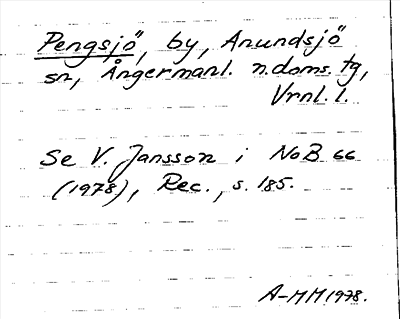 Pengsjö, by, Anundsjö
sn, Ångermanl. n.doms. tg,
Vrnl. l.
Se V. Jansson i NoB 66
(1978), Rec., s. 185.
A-MM 1978.